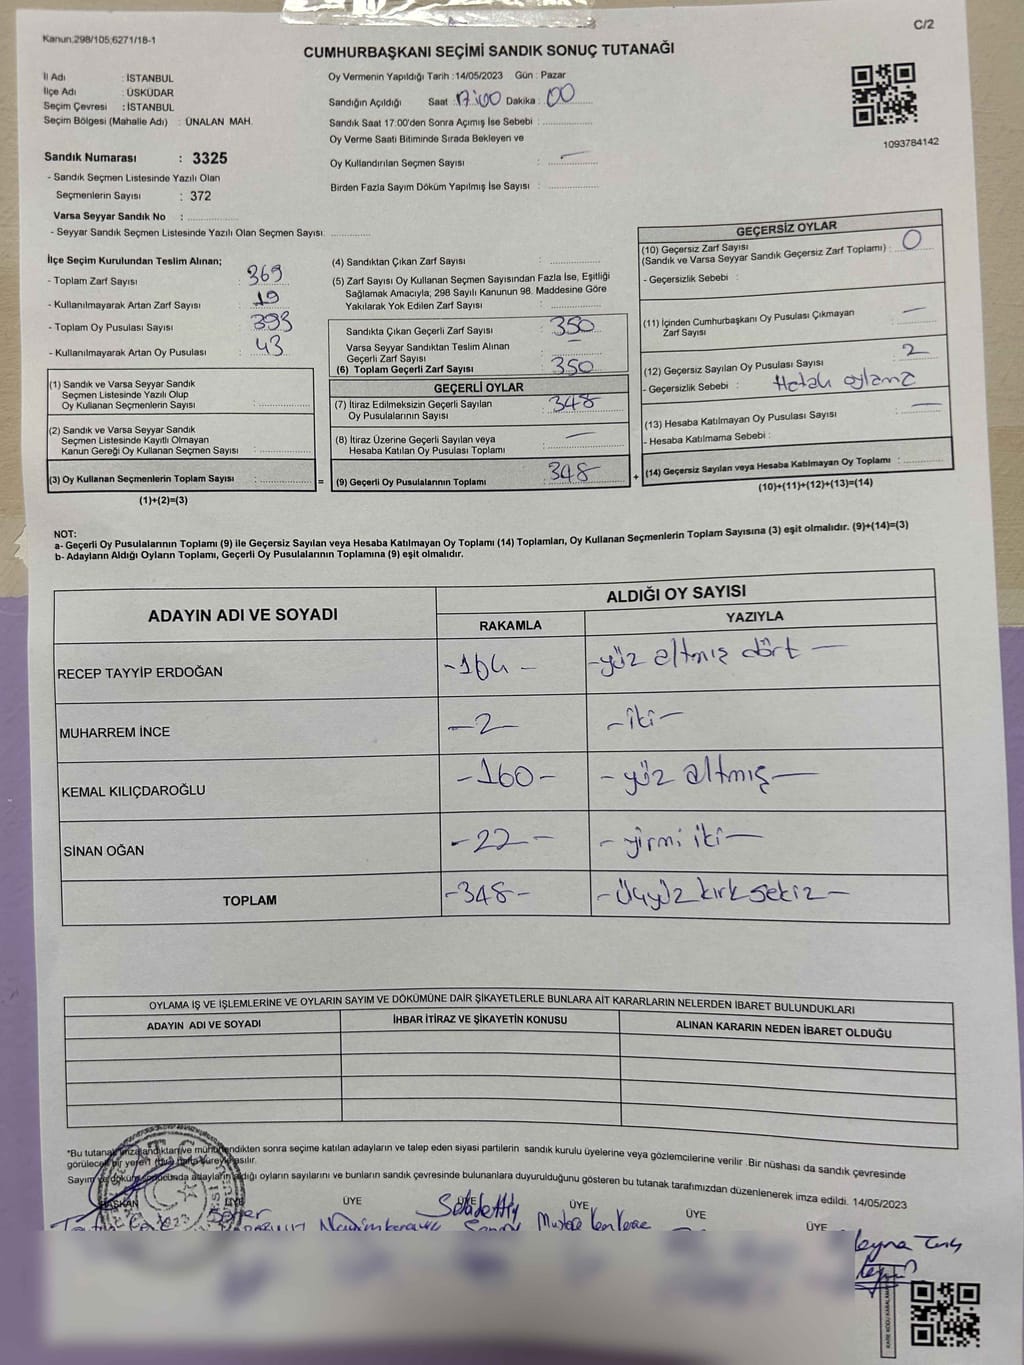 Kanun:298/105;6271/18-1
C/2
CUMHURBAŞKANI SEÇİMİ SANDIK SONUÇ TUTANAĞI
İl Adı : İSTANBUL
İlçe Adı : ÜSKÜDAR
Seçim Çevresi : İSTANBUL
Seçim Bölgesi (Mahalle Adı) : ÜNALAN MAH.
Oy Vermenin Yapıldığı Tarih :14/05/2023 Gün : Pazar
Sandığın Açıldığı Saat : 17:00 Dakika : 00
Sandık Saat 17:00'den Sonra Açımış İse Sebebi :
Oy Verme Saati Bitiminde Sırada Bekleyen ve
Oy Kullandırılan Seçmen Sayısı : —
Birden Fazla Sayım Döküm Yapılmış İse Sayısı :
1093784142
Sandık Numarası : 3325
- Sandık Seçmen Listesinde Yazılı Olan
Seçmenlerin Sayısı : 372
Varsa Seyyar Sandık No :
- Seyyar Sandık Seçmen Listesinde Yazılı Olan Seçmen Sayısı:
İlçe Seçim Kurulundan Teslim Alınan;
- Toplam Zarf Sayısı : 369
- Kullanılmayarak Artan Zarf Sayısı : 19
- Toplam Oy Pusulası Sayısı : 393
- Kullanılmayarak Artan Oy Pusulası : 43
(1) Sandık ve Varsa Seyyar Sandık
Seçmen Listesinde Yazılı Olup
Oy Kullanan Seçmenlerin Sayısı :
(2) Sandık ve Varsa Seyyar Sandık
Seçmen Listesinde Kayıtlı Olmayan
Kanun Gereği Oy Kullanan Seçmen Sayısı :
(3) Oy Kullanan Seçmenlerin Toplam Sayısı : =
(1)+(2)=(3)
(4) Sandıktan Çıkan Zarf Sayısı :
(5) Zarf Sayısı Oy Kullanan Seçmen Sayısından Fazla İse, Eşitliği
Sağlamak Amacıyla; 298 Sayılı Kanunun 98. Maddesine Göre
Yakılarak Yok Edilen Zarf Sayısı :
Sandıkta Çıkan Geçerli Zarf Sayısı : 350
Varsa Seyyar Sandıktan Teslim Alınan
Geçerli Zarf Sayısı : —
(6) Toplam Geçerli Zarf Sayısı : 350
GEÇERLİ OYLAR
(7) İtiraz Edilmeksizin Geçerli Sayılan
Oy Pusulalarının Sayısı : 348
(8) İtiraz Üzerine Geçerli Sayılan veya
Hesaba Katılan Oy Pusulası Toplamı : —
(9) Geçerli Oy Pusulalarının Toplamı : 348 +
GEÇERSİZ OYLAR
(10) Geçersiz Zarf Sayısı
(Sandık ve Varsa Seyyar Sandık Geçersiz Zarf Toplamı) : 0
- Geçersizlik Sebebi :
(11) İçinden Cumhurbaşkanı Oy Pusulası Çıkmayan
Zarf Sayısı : —
(12) Geçersiz Sayılan Oy Pusulası Sayısı : 2
- Geçersizlik Sebebi : Hatalı oylama
(13) Hesaba Katılmayan Oy Pusulası Sayısı : —
- Hesaba Katılmama Sebebi :
(14) Geçersiz Sayılan veya Hesaba Katılmayan Oy Toplamı :
(10)+(11)+(12)+(13)=(14)
NOT:
a- Geçerli Oy Pusulalarının Toplamı (9) ile Geçersiz Sayılan veya Hesaba Katılmayan Oy Toplamı (14) Toplamları, Oy Kullanan Seçmenlerin Toplam Sayısına (3) eşit olmalıdır. (9)+(14)=(3)
b- Adayların Aldığı Oyların Toplamı, Geçerli Oy Pusulalarının Toplamına (9) eşit olmalıdır.
ADAYIN ADI VE SOYADI
ALDIĞI OY SAYISI
RAKAMLA YAZIYLA
RECEP TAYYİP ERDOĞAN -164- -yüz altmış dört-
MUHARREM İNCE -2- -iki-
KEMAL KILIÇDAROĞLU -160- -yüz altmış-
SİNAN OĞAN -22- -yirmi iki-
TOPLAM -348- -üçyüz kırk sekiz-
OYLAMA İŞ VE İŞLEMLERİNE VE OYLARIN SAYIM VE DÖKÜMÜNE DAİR ŞİKAYETLERLE BUNLARA AİT KARARLARIN NELERDEN İBARET BULUNDUKLARI
ADAYIN ADI VE SOYADI İHBAR İTİRAZ VE ŞİKAYETİN KONUSU ALINAN KARARIN NEDEN İBARET OLDUĞU
*Bu tutanak imzalandıktan ve mühürlendikten sonra seçime katılan adayların ve talep eden siyasi partilerin sandık kurulu üyelerine veya gözlemcilerine verilir. Bir nüshası da sandık çevresinde
görülecek bir yerde süreyle asılır.
Sayım ve döküm sonucunda adayların aldığı oyların sayılarını ve bunların sandık çevresinde bulunanlara duyurulduğunu gösteren bu tutanak tarafımızdan düzenlenerek imza edildi. 14/05/2023
BAŞKAN ÜYE ÜYE ÜYE ÜYE ÜYE ÜYE